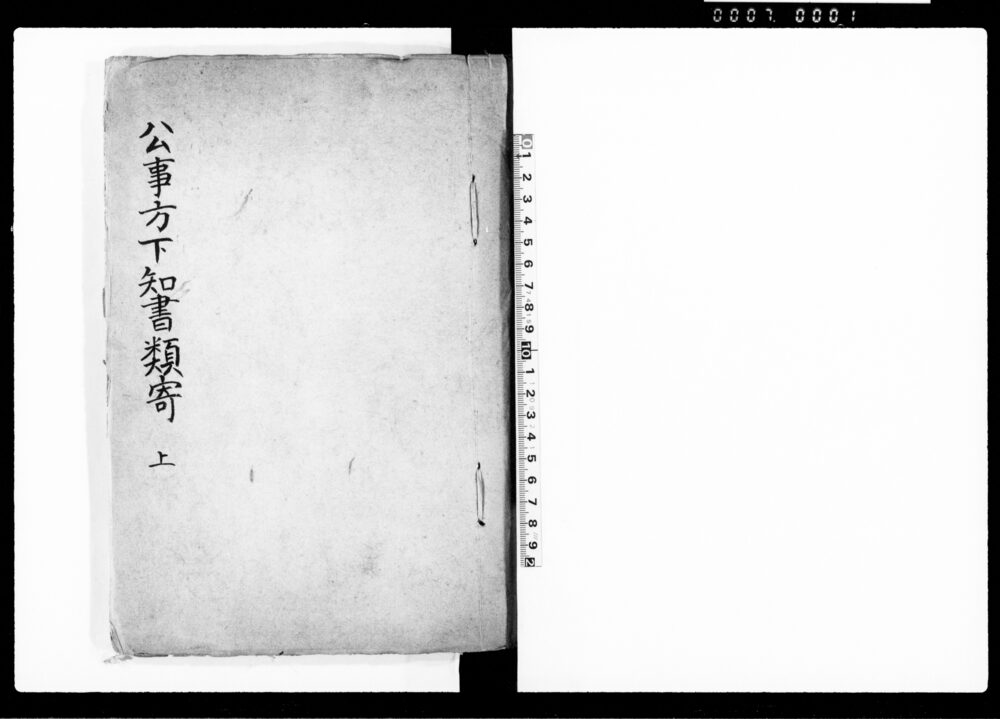 0007. 0001
公事方下知書類寄 上
0 1 2 3 4 5 6 7 8 9 10 1 2 3 4 5 6 7 8 9 2